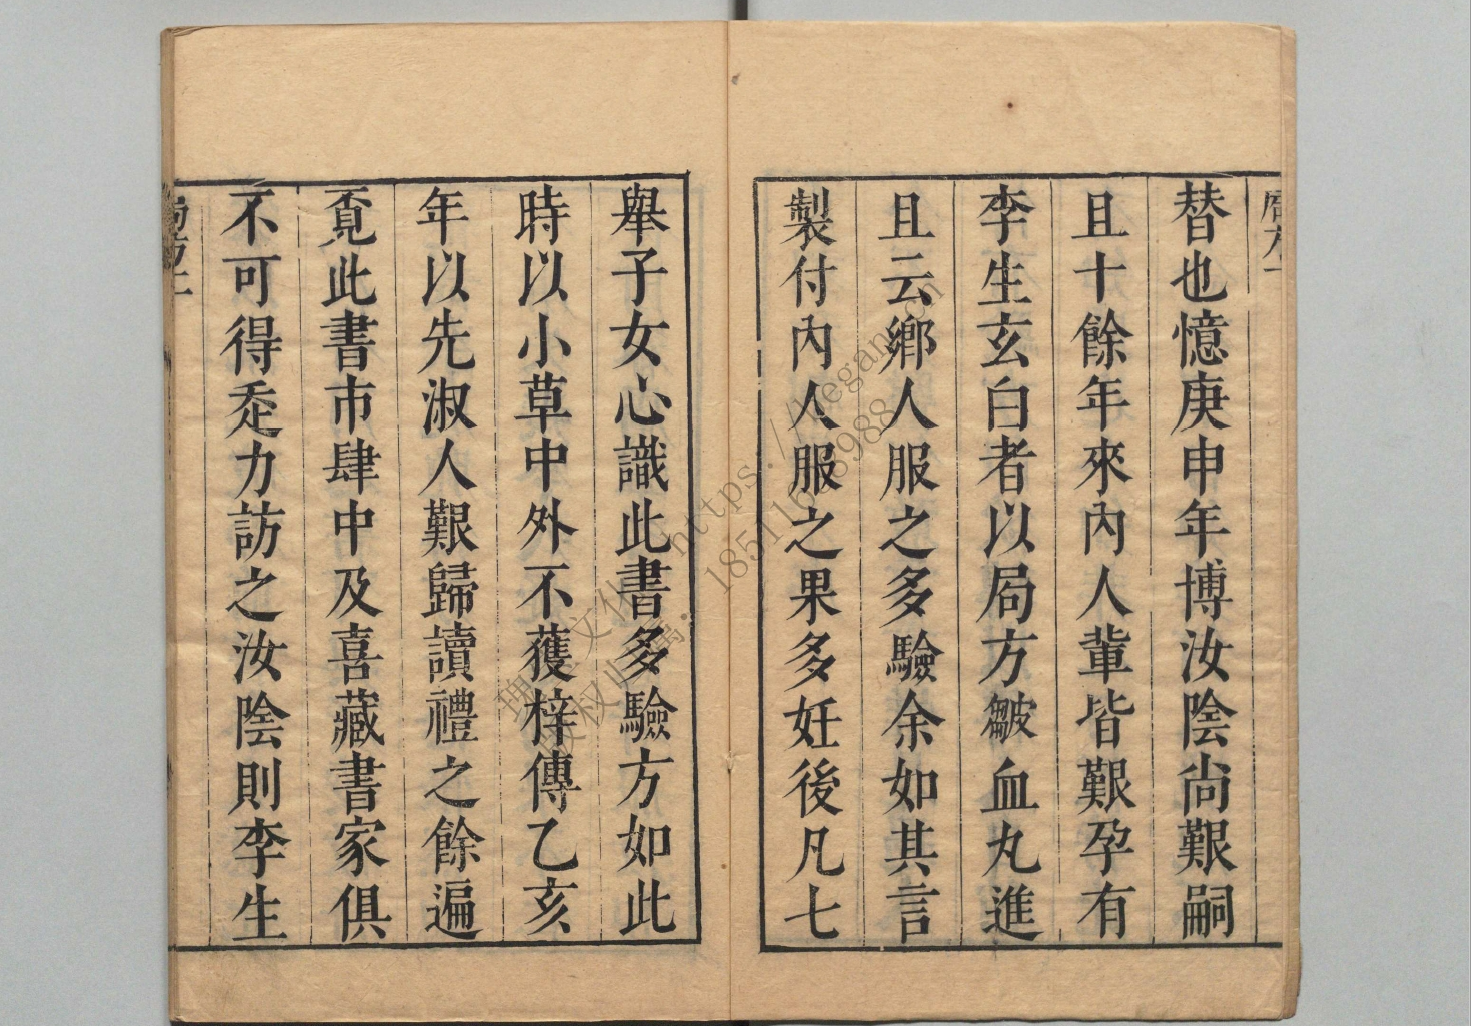 替也憶庚申年博汝陰尚艱嗣
且十餘年來內人輩皆艱孕有
李生玄白者以局方皺血丸進
且云鄉人服之多驗余如其言
製付內人服之果多妊後凡七
舉子女心識此書多驗方如此
時以小草中外不獲梓傳乙亥
年以先淑人艱歸讀禮之餘遍
覔此書市肆中及喜藏書家俱
不可得迯力訪之汝陰則李生
https://hegan